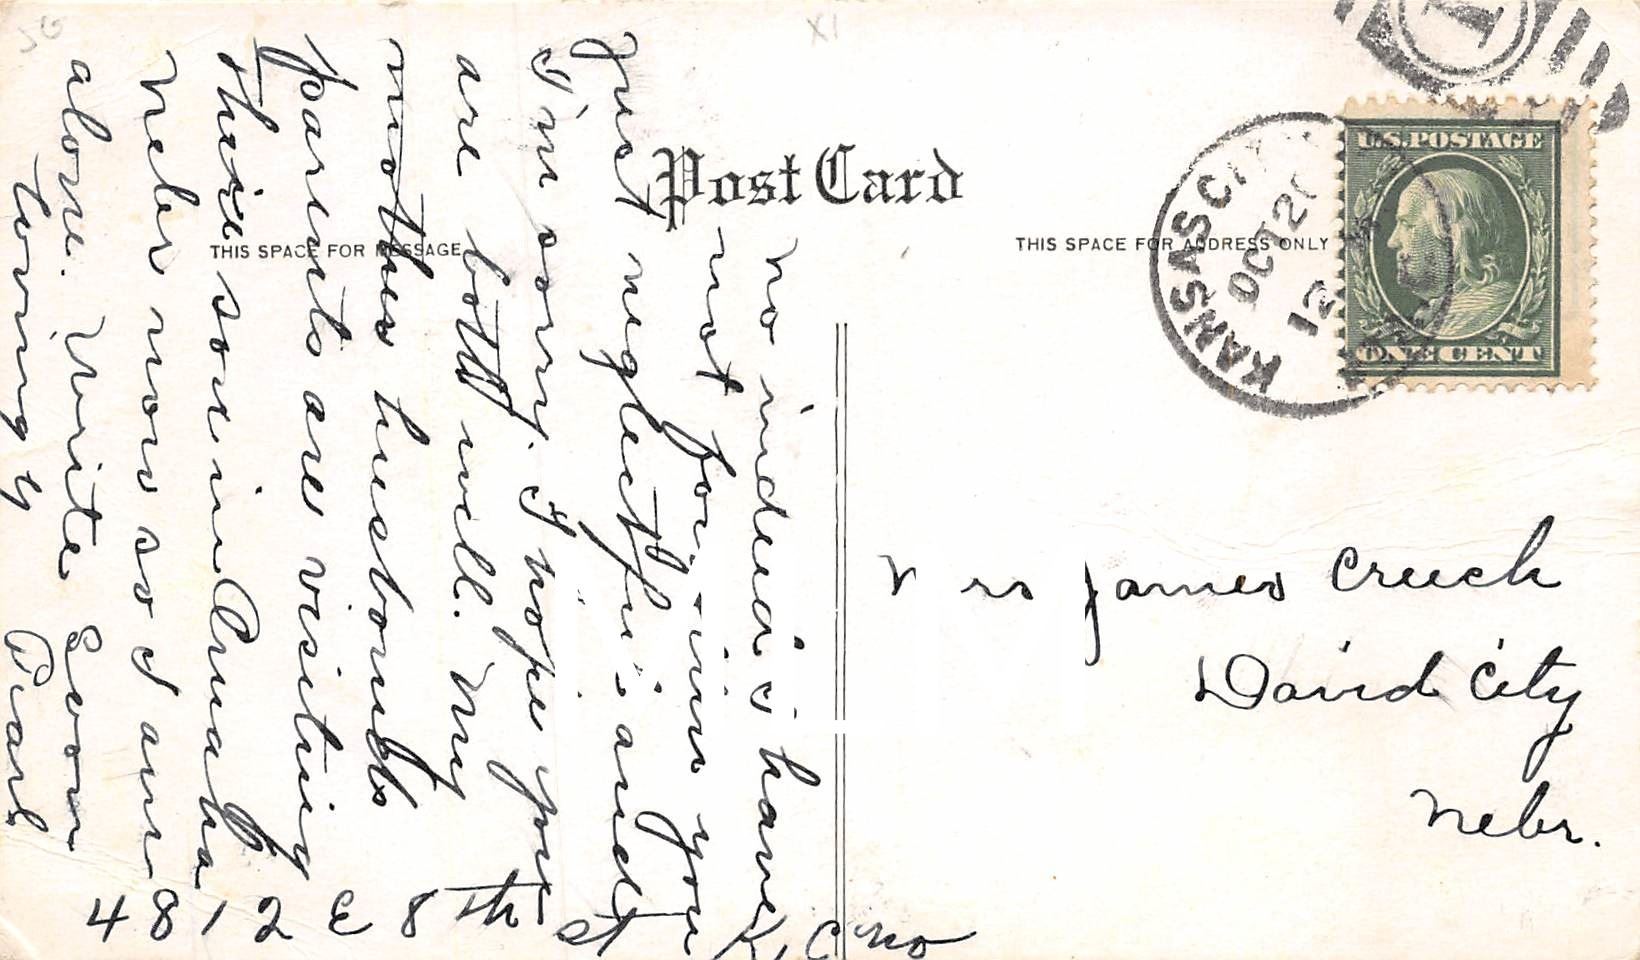 Post Card
THIS SPACE FOR MESSAGE
THIS SPACE FOR ADDRESS ONLY
KANSAS CITY
OCT 20
12
U.S. POSTAGE
ONE CENT
1
XI
no indeed is have
not for
you
Just neglectful and
I'm sorry. I hope you
are both well. My
mother husbonds
parents are visiting
there son in Omaha
Nebr now so I am
alone. Write Soon
Loving y
Pearl
4812 E 8th St K.C. Mo
Mrs James Creech
David City
Nebr.